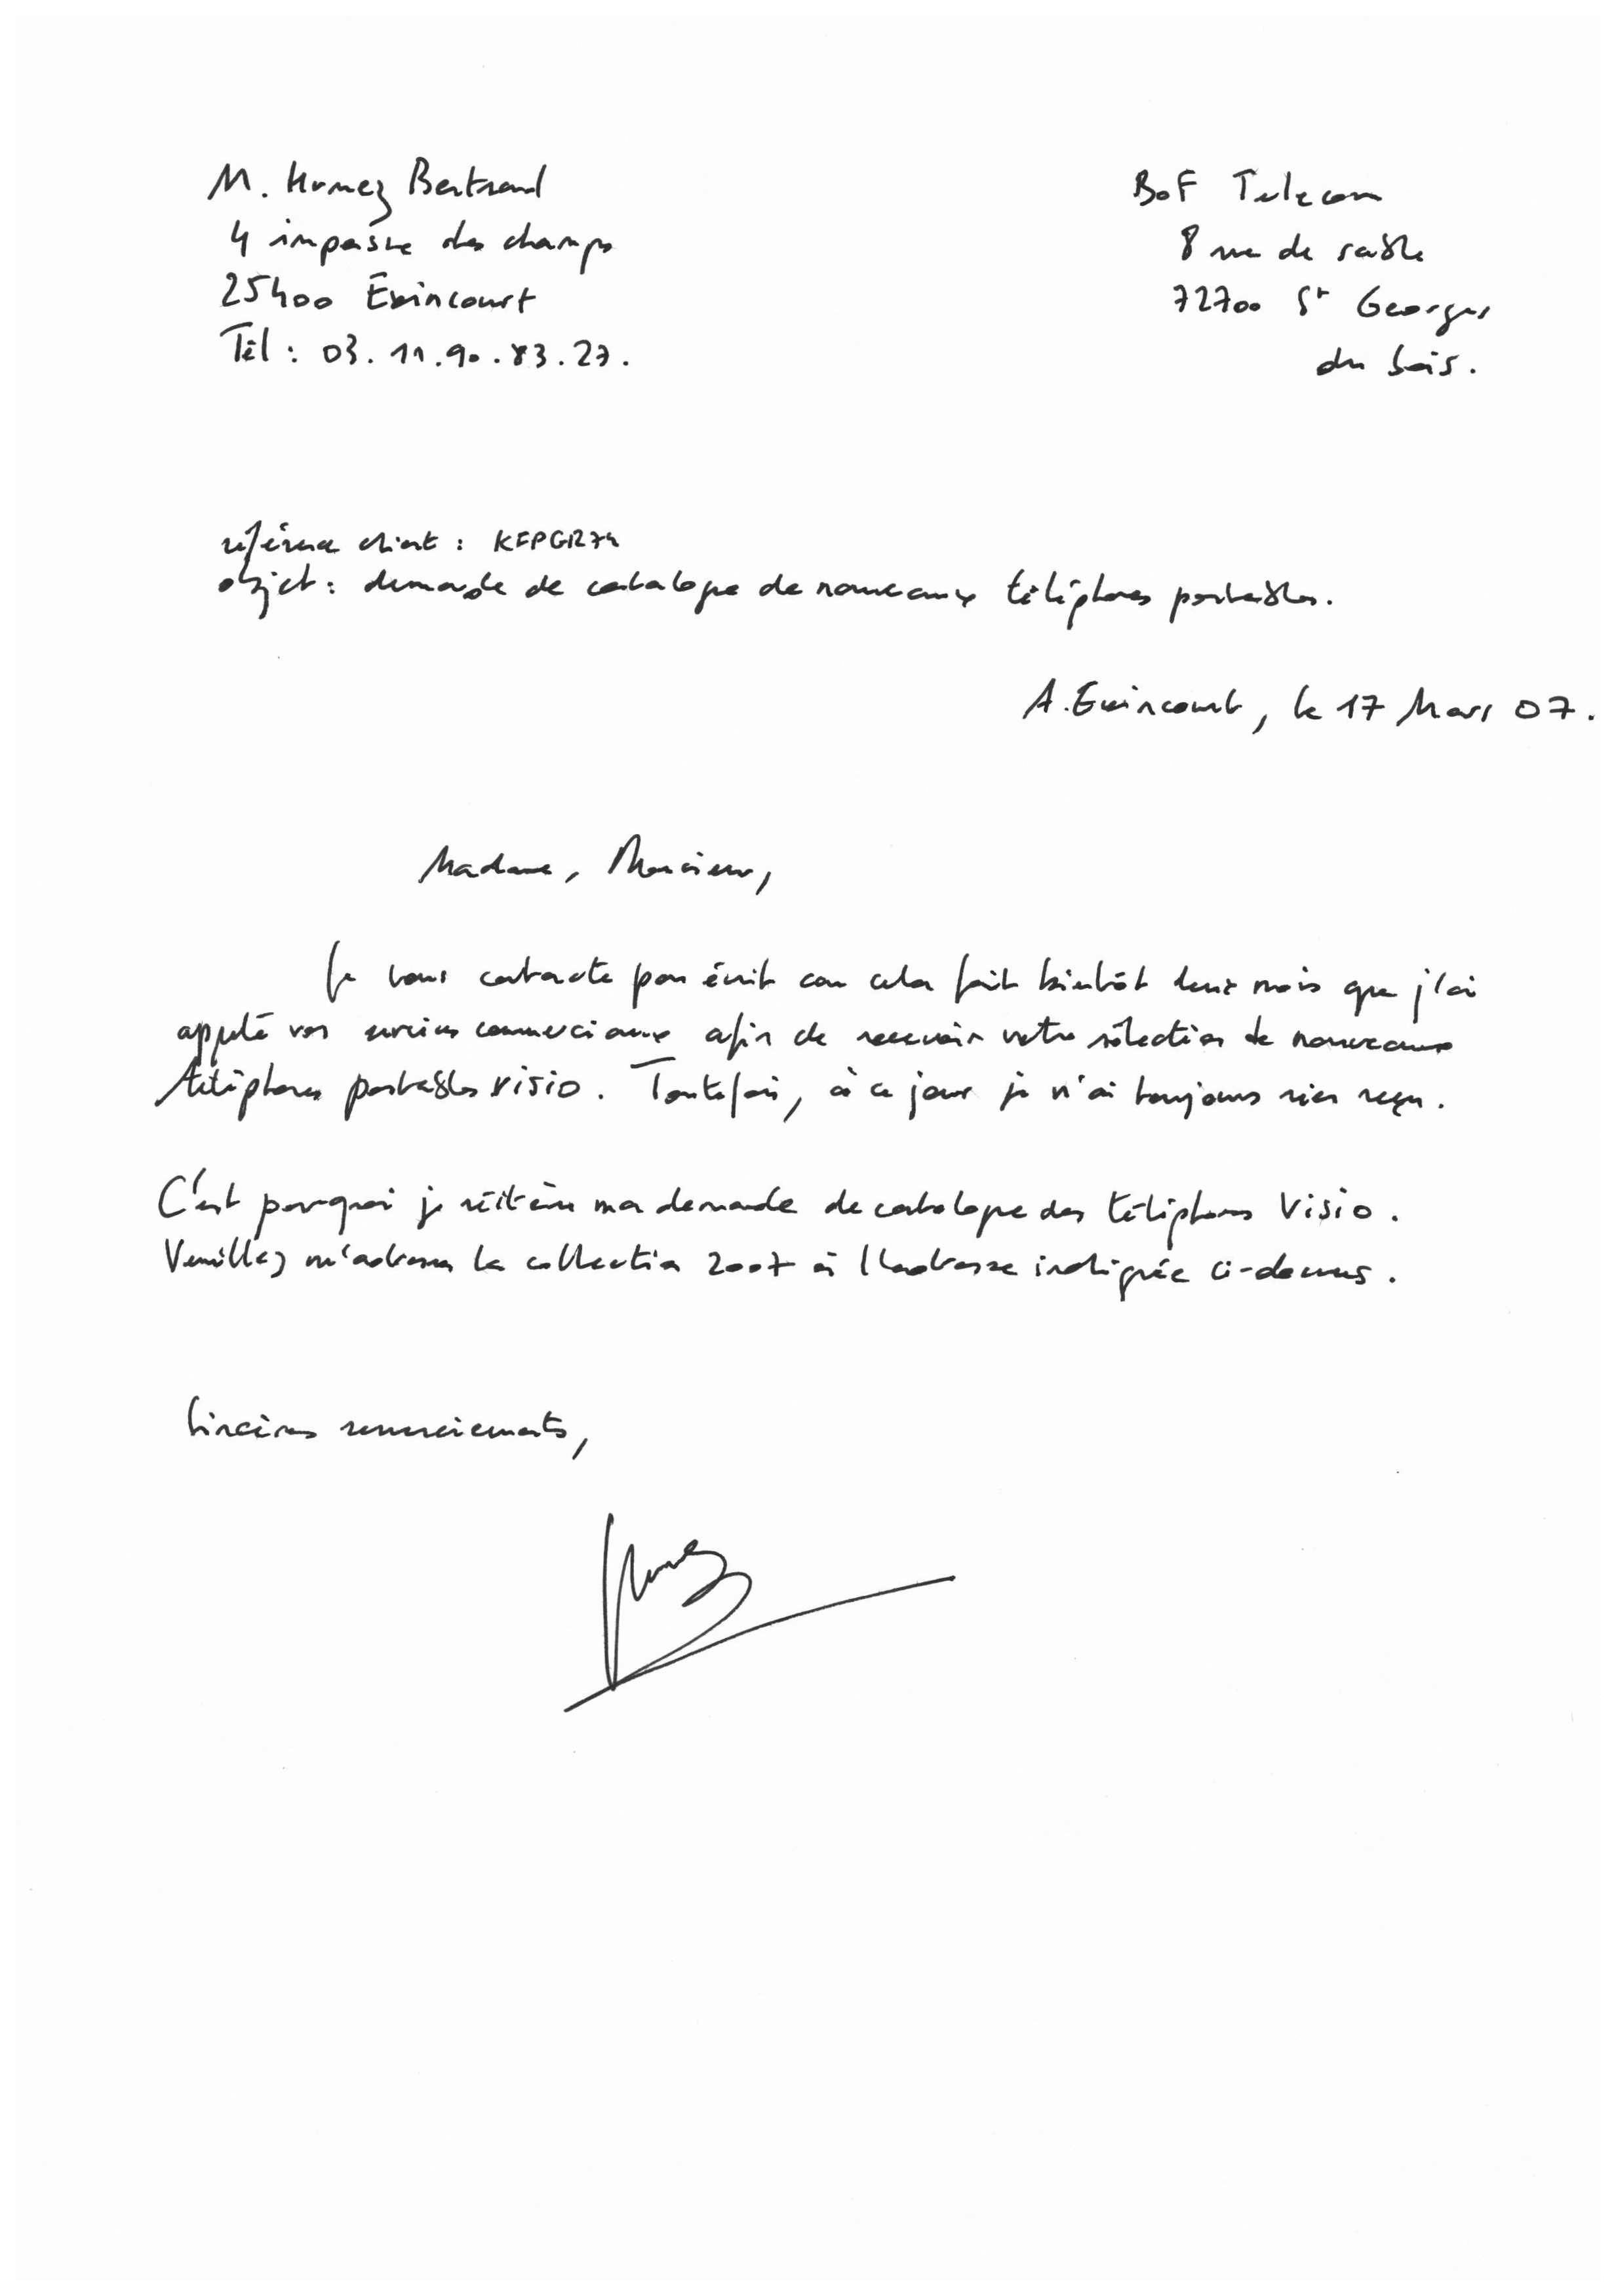 M. Humez Bertrand
4 impasse des champs
25400 Exincourt
Tél : 03.11.90.83.27.
BoF Telecom
8 rue de sable
72700 St Georges
du bois.
référence client : KFPGR74
objet : demande de catalogue de nouveaux téléphones portables.
A. Exincourt, le 17 Mars 07.
Madame, Monsieur,
Je vous contacte par écrit car cela fait bientôt deux mois que j'ai
appelé vos services commerciaux afin de recevoir votre sélection de nouveaux
téléphones portables visio. Toutefois, à ce jour je n'ai toujours rien reçu.
C'est pourquoi je réitère ma demande de catalogue des téléphones Visio.
Veuillez m'adresser la collection 2007 à l'adresse indiquée ci-dessus.
Sincères remerciements,
Humez